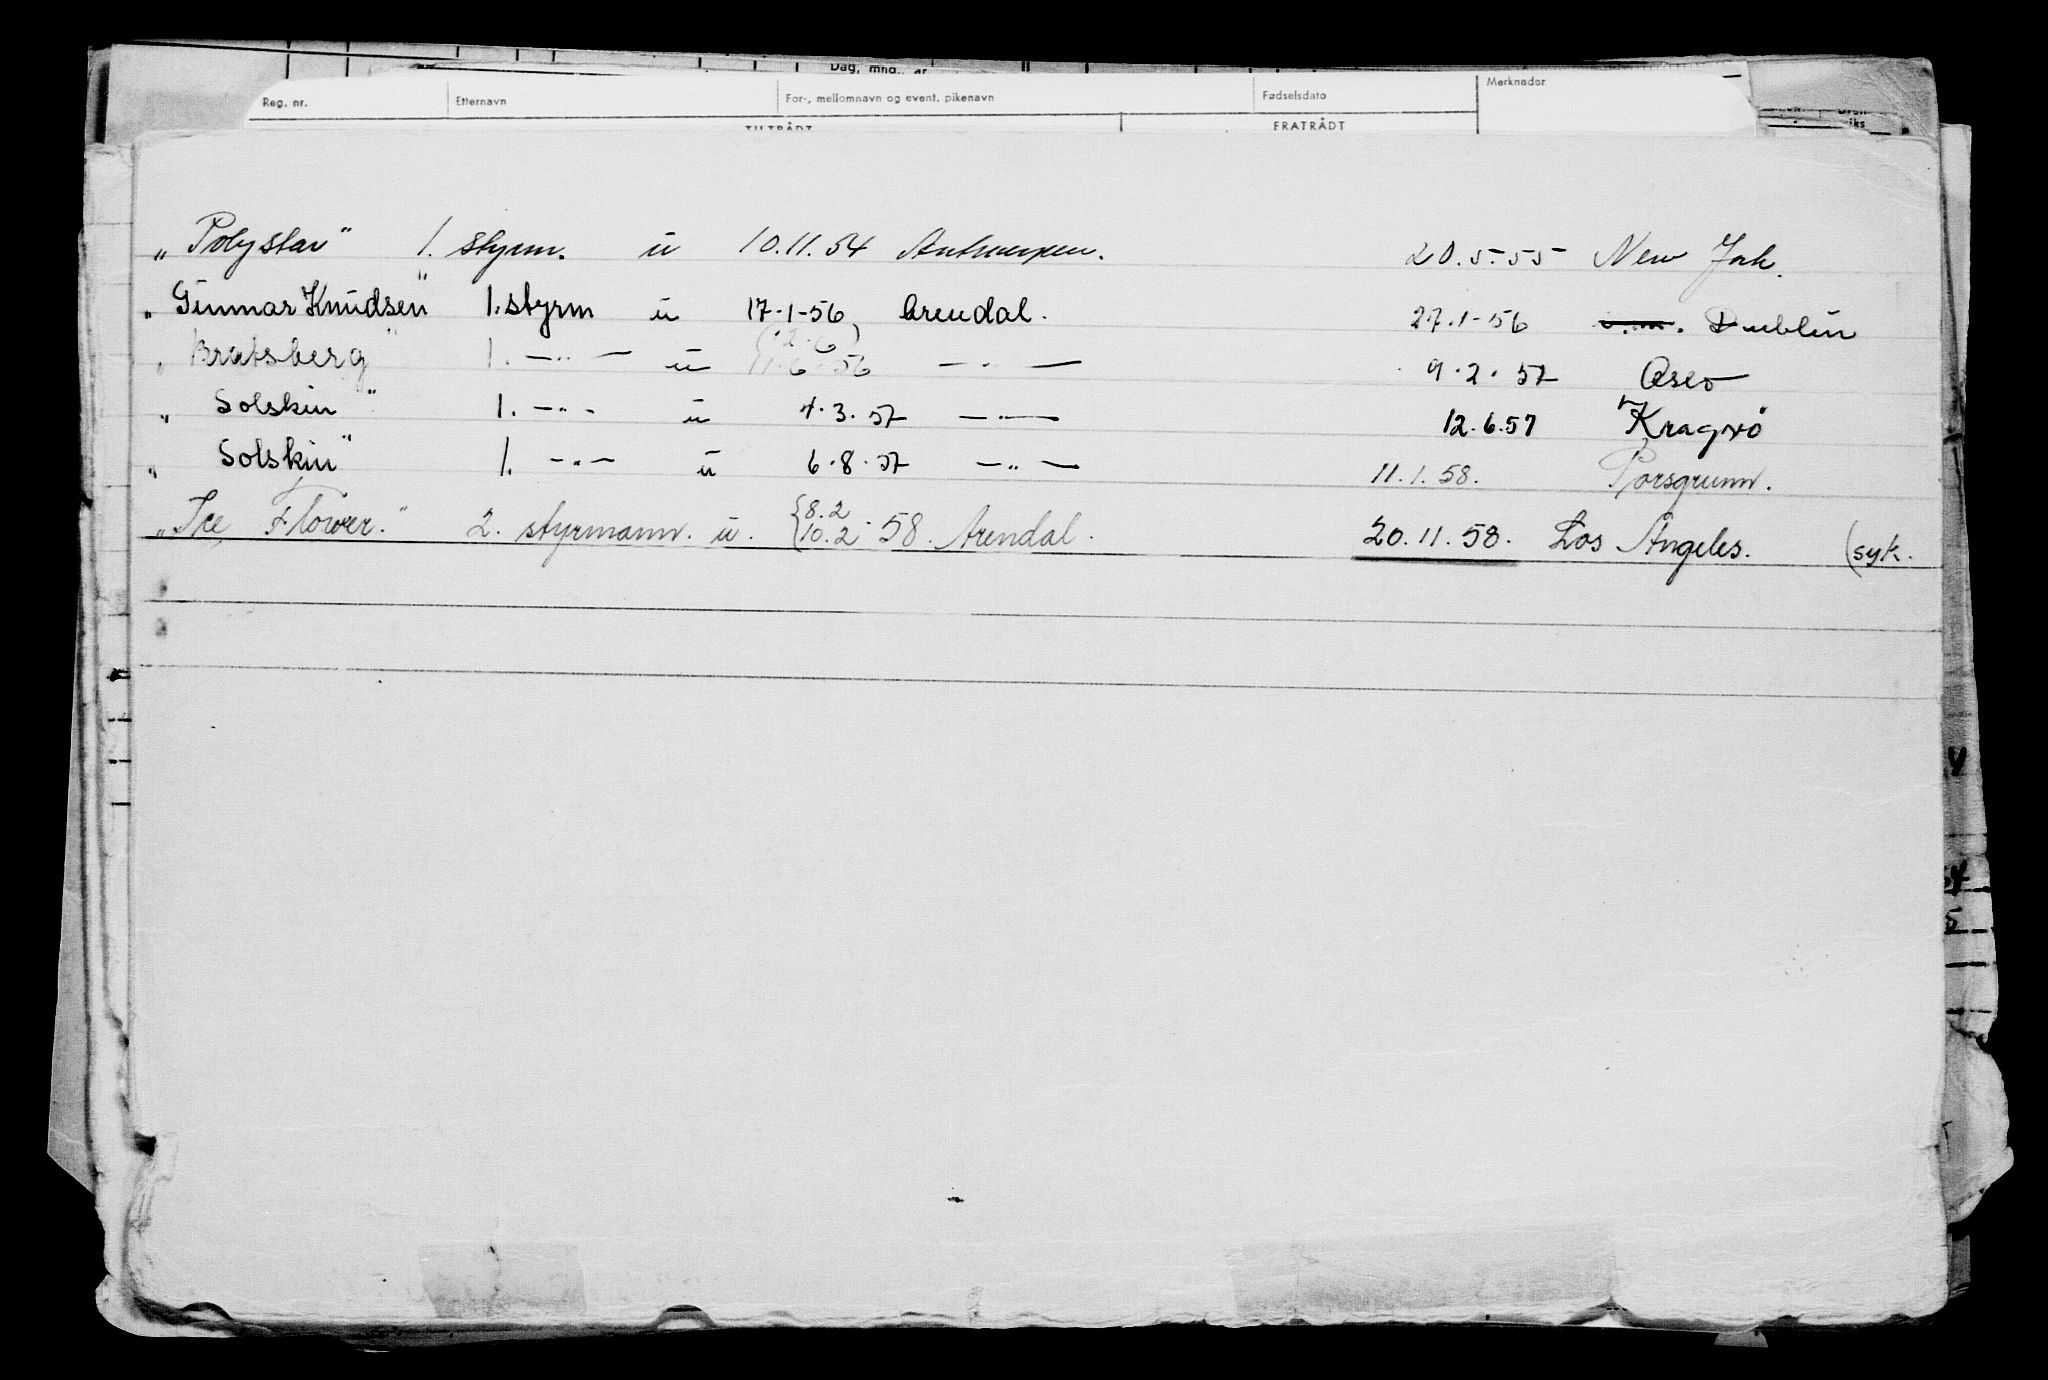 Dag, mnd., år
Reg. nr. Etternavn For-, mellomnavn og event. pikenavn Fødselsdato Merknader
TILTRÅDT FRATRÅDT
iks
„Polystar" 1. styrm. u 10.11.54 Antwerpen. 20.5.55 New York.
„Gunnar Knudsen" 1. styrm u 17-1-56 Arendal. 27.1-56 Dublin
„Bratsberg" 1. —"— u 11.6.56 —"— 9.2.57 Oslo
„Solskin" 1. —"— u 4.3.57 —"— 12.6.57 Kragrø
„Solskin" 1. —"— u 6.8.57 —"— 11.1.58. Porsgrunn.
„Ice Flower." 2. styrmann. u. {8.2 10.2.58. Arendal. 20.11.58. Los Angeles. (syk.